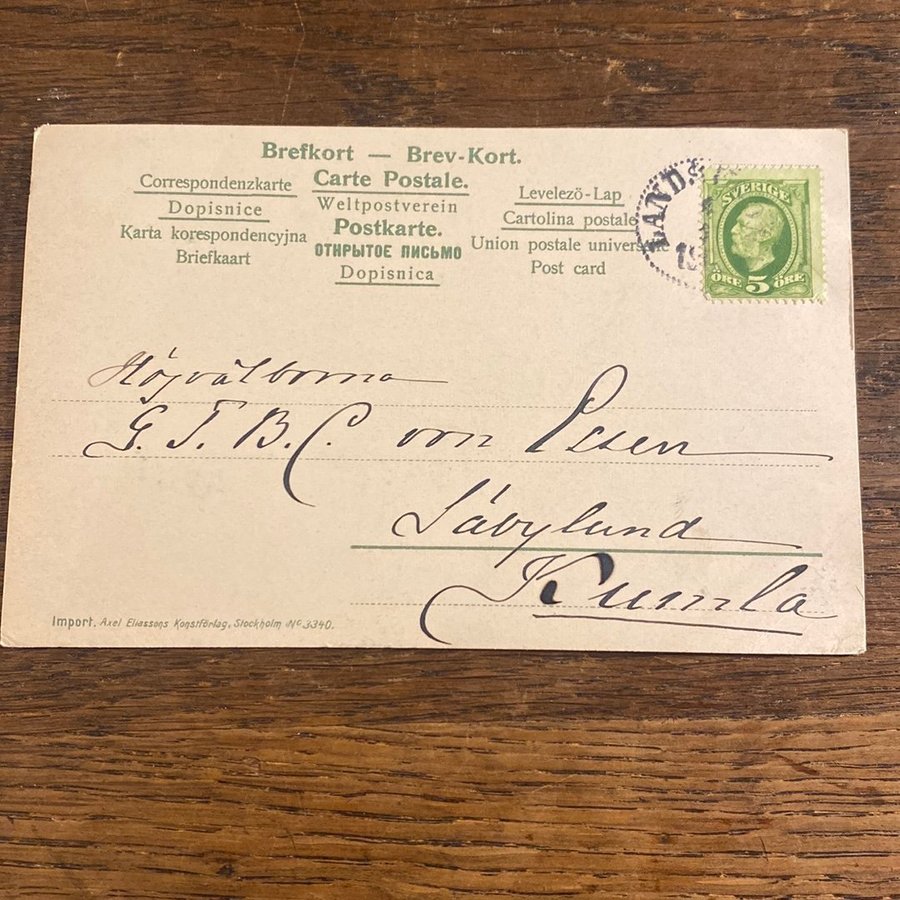 Brefkort — Brev-Kort.
Correspondenzkarte
Carte Postale.
Levelezö-Lap
Dopisnice
Weltpostverein
Cartolina postale
Karta korespondencyjna
Postkarte.
Union postale universelle
Briefkaart
ОТКРЫТОЕ ПИСЬМО
Post card
Dopisnica
LANDS
19
SVERIGE
ÖRE 5 ÖRE
Högvälborna
G. F. B. C. von Essen
Säbylund
Kumla
Import. Axel Eliassons Konstförlag, Stockholm No 3340.